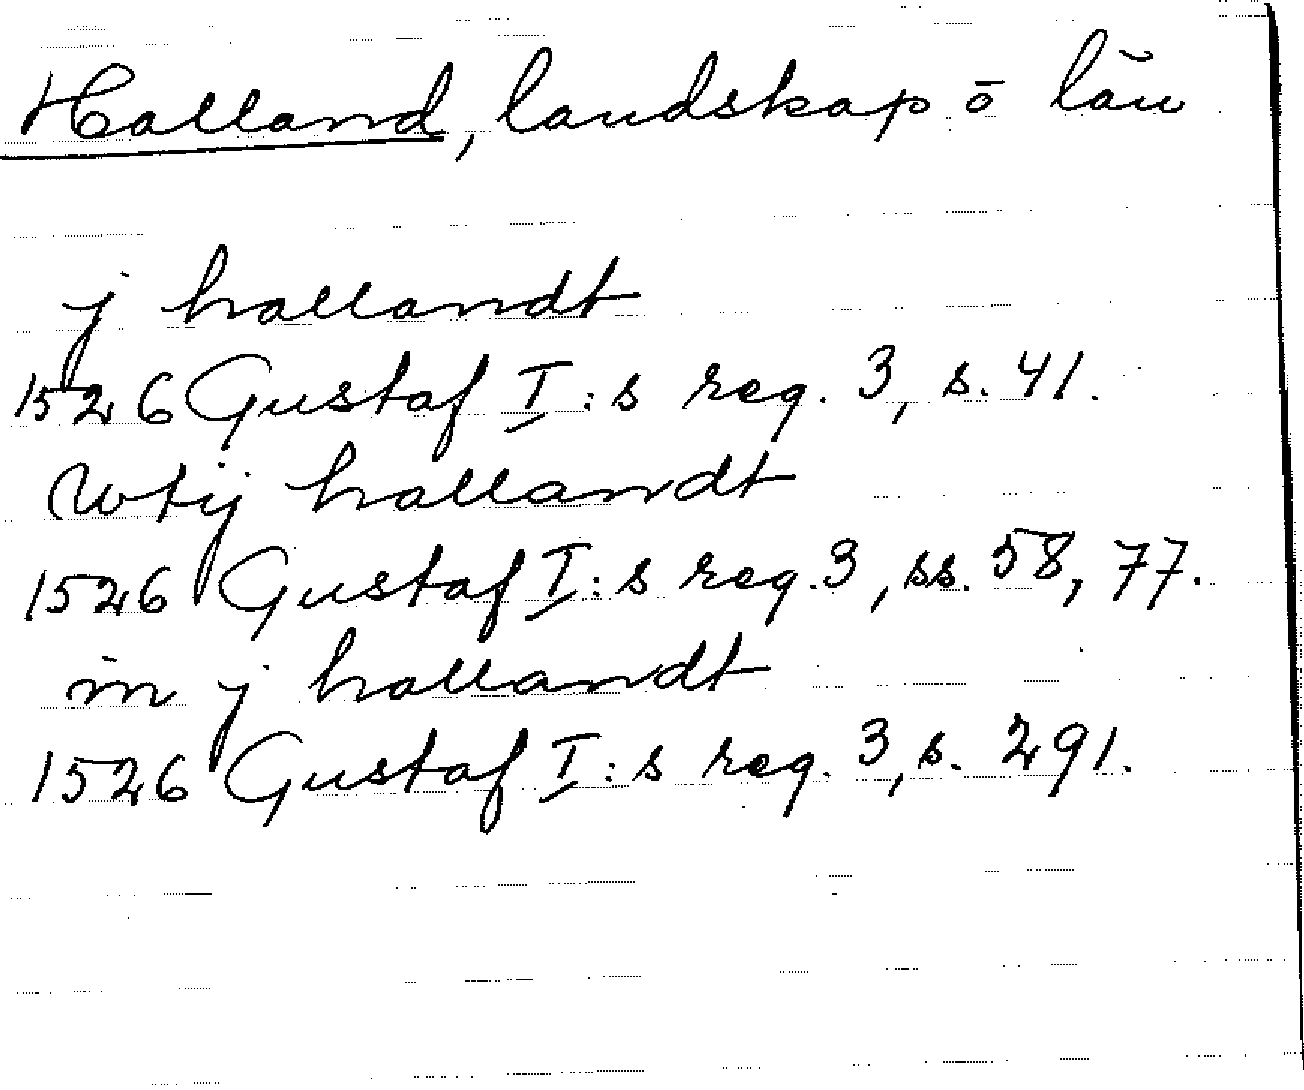 Halland, landskap ō län
j hallandt
1526 Gustaf I:s reg. 3, s. 41.
wtij hallandt
1526 Gustaf I:s reg. 3, ss. 58, 77.
in j hallandt
1526 Gustaf I:s reg. 3, s. 291.